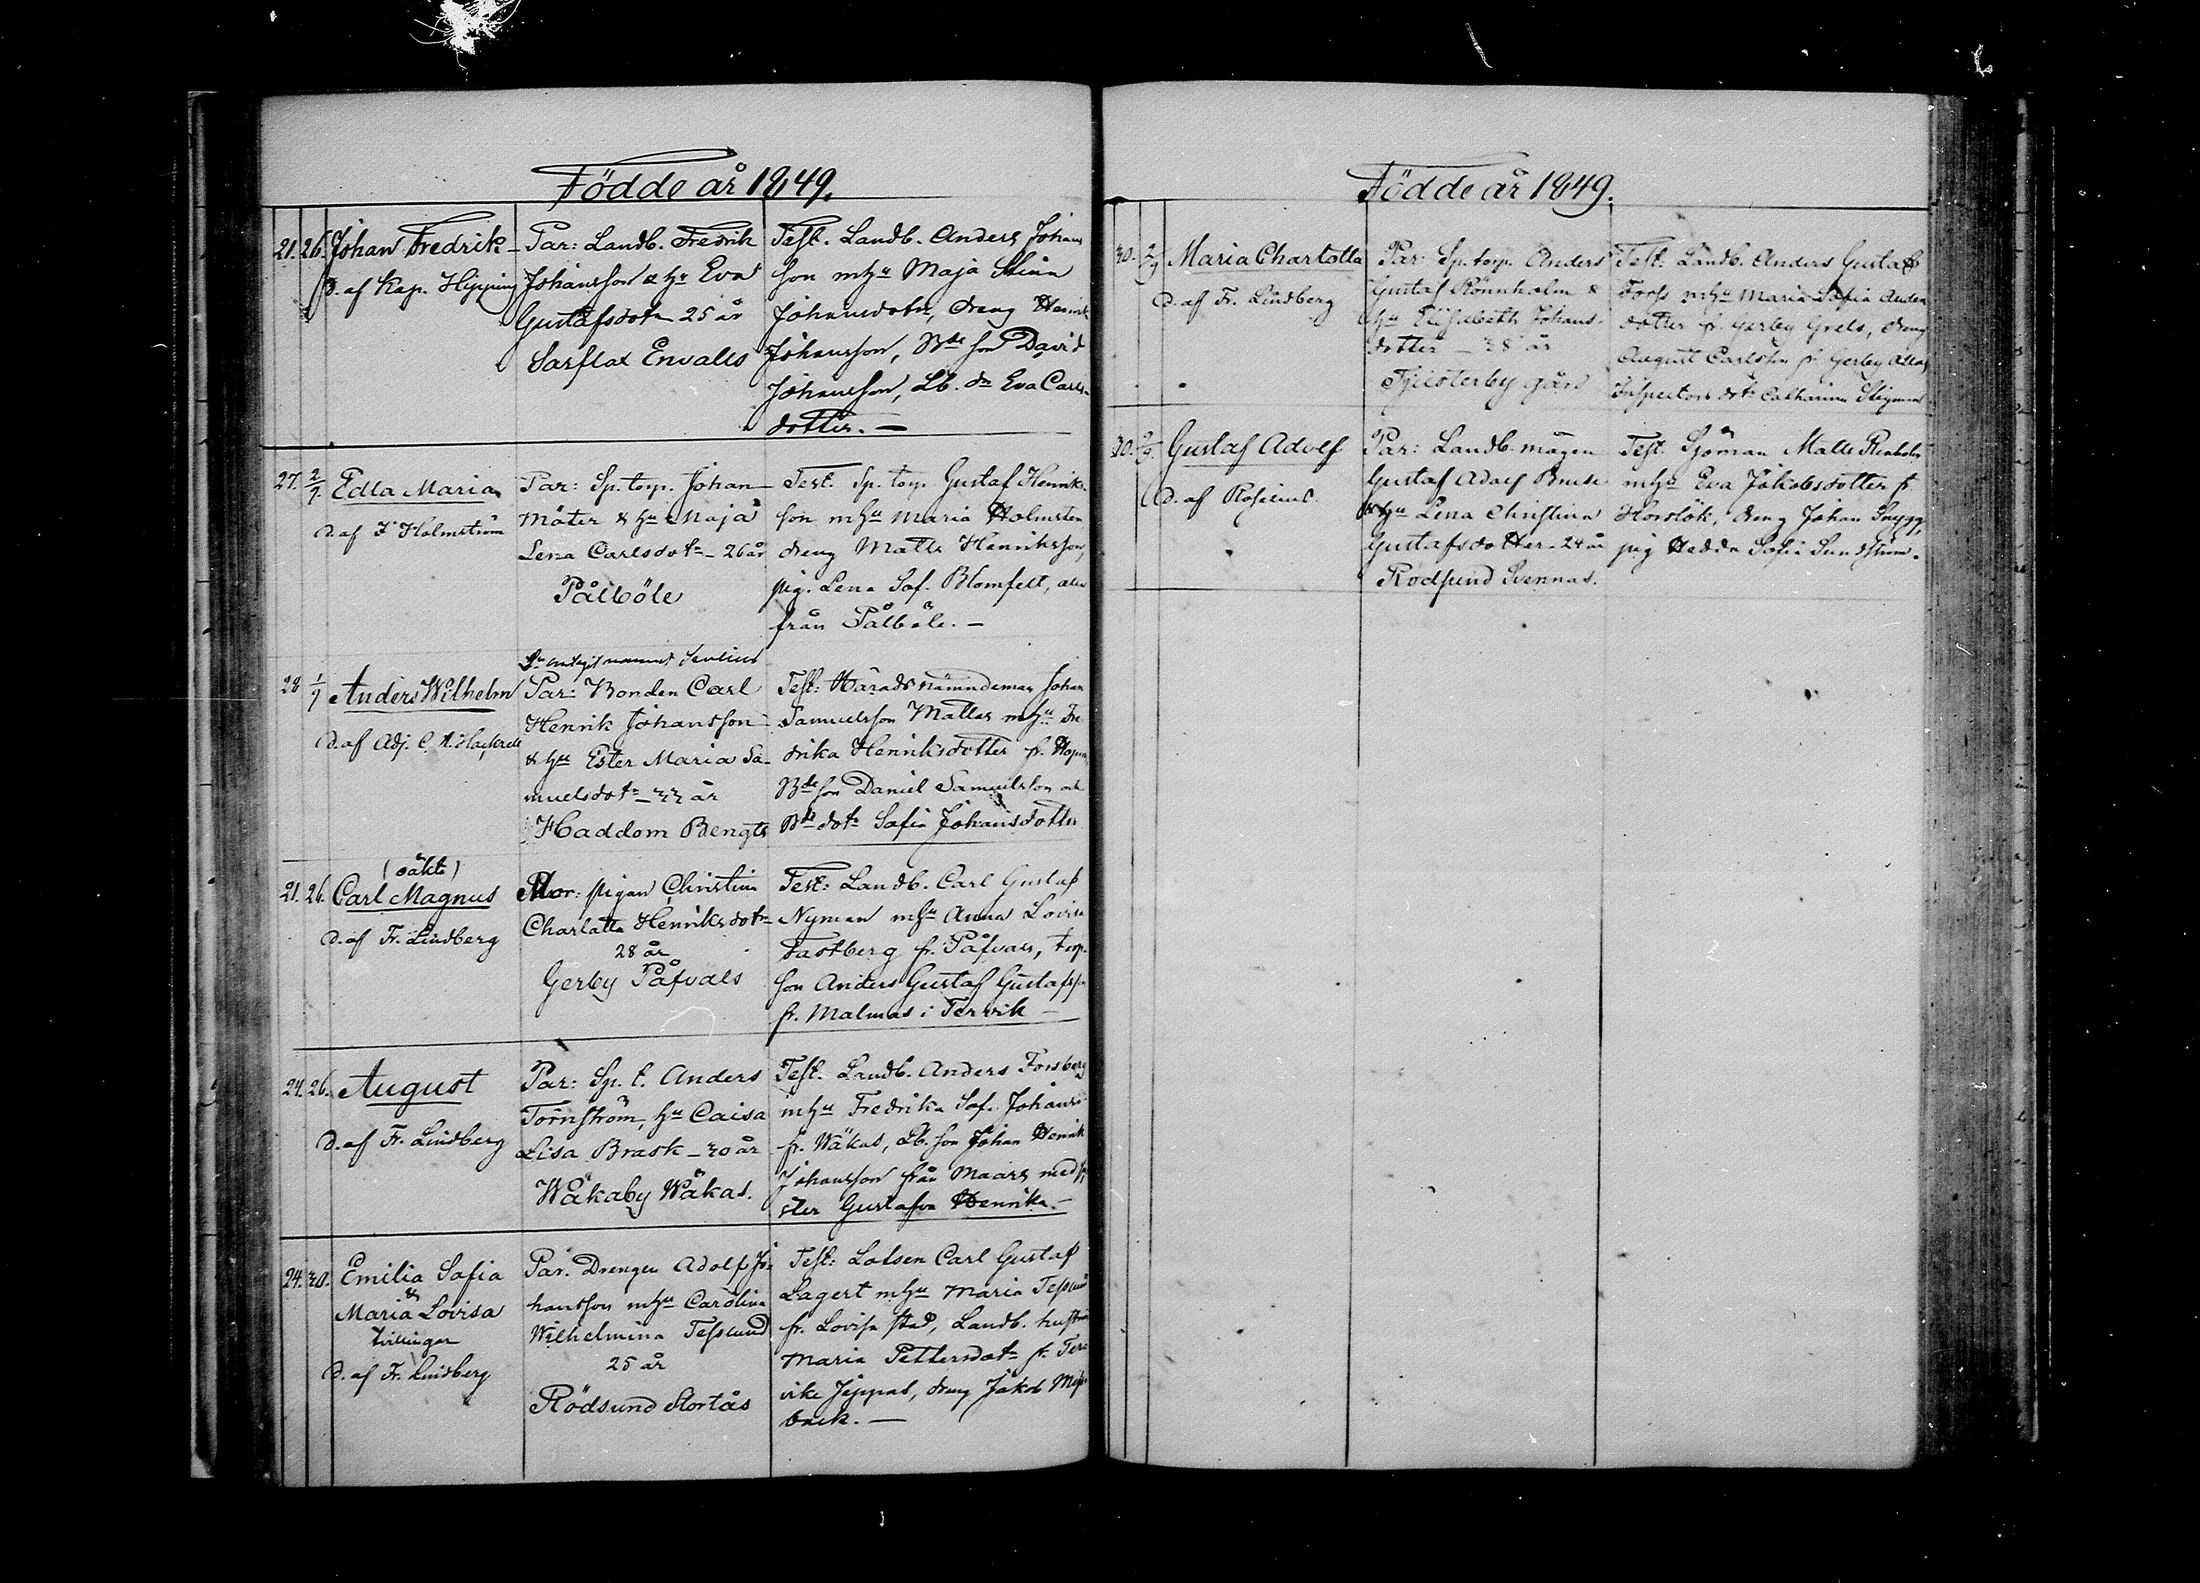 Födde år 1849.
21. 26. Johan Fredrik
D. af Kap. Hipping
Par: Landb. Fredrik
Johansson & hu Eva
Gustafsdotr 25 år
Sarflax Envalls
Test. Landb. Anders Johans
son mhu Maja Stina
Johansdotr, dreng Henrik
Johansson, Bde son David
Johansson, Lb. dr Eva Carls-
dotter. —
27. 2/7 Edla Maria
D. af F Holmström
Par: Sp. torp. Johan
Mäter & hu Maja
Lena Carlsdotr - 26 år
Pålböle
Test. Sp. torp Gustaf Henriks-
son mhu Maria Holmsten
dreng Matts Henriksson,
pig. Lena Sof. Blomfelt, alla
från Pålböle. —
namnet Sevelius
28 1/7 Anders Wilhelm
D. af Adj. C. A.
Par: Bonden Carl
Henrik Johansson
& hu Ester Maria Sa-
muelsdotr - 33 år
Haddom Bengts
Test: Häradsnämndeman Johan
Samuelsson Mattas mhu Fre
drika Henriksdotter fr.
Bde son Daniel Samuelsson och
Bde dotr Sofia Johansdotter
(oäkta)
21. 26. Carl Magnus
D. af Fr. Lindberg
Mor: pigan Christina
Charlotta Henriksdotr
28 år
Gerby Påfvals
Test: Landb. Carl Gustaf
Nyman mhu Anna Lovisa
Fastberg fr. Påfvals, torp.
son Anders Gustaf Gustafsson
fr. Malmas i Tervik —
24. 26. August
D. af Fr. Lindberg
Par: Sp. t. Anders
Törnström, hu Caisa
Lisa Brask - 30 år
Wåkaby Wäkas.
Test. Landb. Anders Forsberg
mhu Fredrika Sof. Johans
fr. Wäkas, Lb. son Johan Henrik
Johansson från Maars med sy
ster Gustafva Henrika. —
24. 30. Emilia Sofia
&
Maria Lovisa
tvillingar
D. af Fr. Lindberg
Par. Drengen Adolf Jo-
hansson mhu Carolina
Wilhelmina Tesslund
25 år
Rödsund Stortås
Test: Lotsen Carl Gustaf
Lagert mhu Maria Tesslund
fr. Lovisa stad, Landb. hustru
Maria Pettersdotr fr. Ter
vik Jeppas, dreng Jakob
back. —
Födde år 1849.
30. 2/9 Maria Charlotta
D. af Fr. Lindberg
Par: Sp. torp. Anders
Gustaf Rönnholm &
hu Elisabeth Johans-
dotter — 38 år
Tjusterby gård
Test. Landb. Anders Gustaf
Forss mhu Maria Sofia Anders
dotter fr. Gerby Grels, dreng
August Carlsson fr. Gerby
Inspectors dotr Catharina
30. 2/9. Gustaf Adolf
D. af Rosenius
Par: Landb. mågen
Gustaf Adolf Buse
& hu Lena Christina
Gustafsdotter - 24 år
Rödsund Svennas.
Test. Sjöman Matts Renholm
mhu Eva Jakobsdotter fr
Horslök, dreng Johan Snygg,
pig Hedda Sofia Sundström.